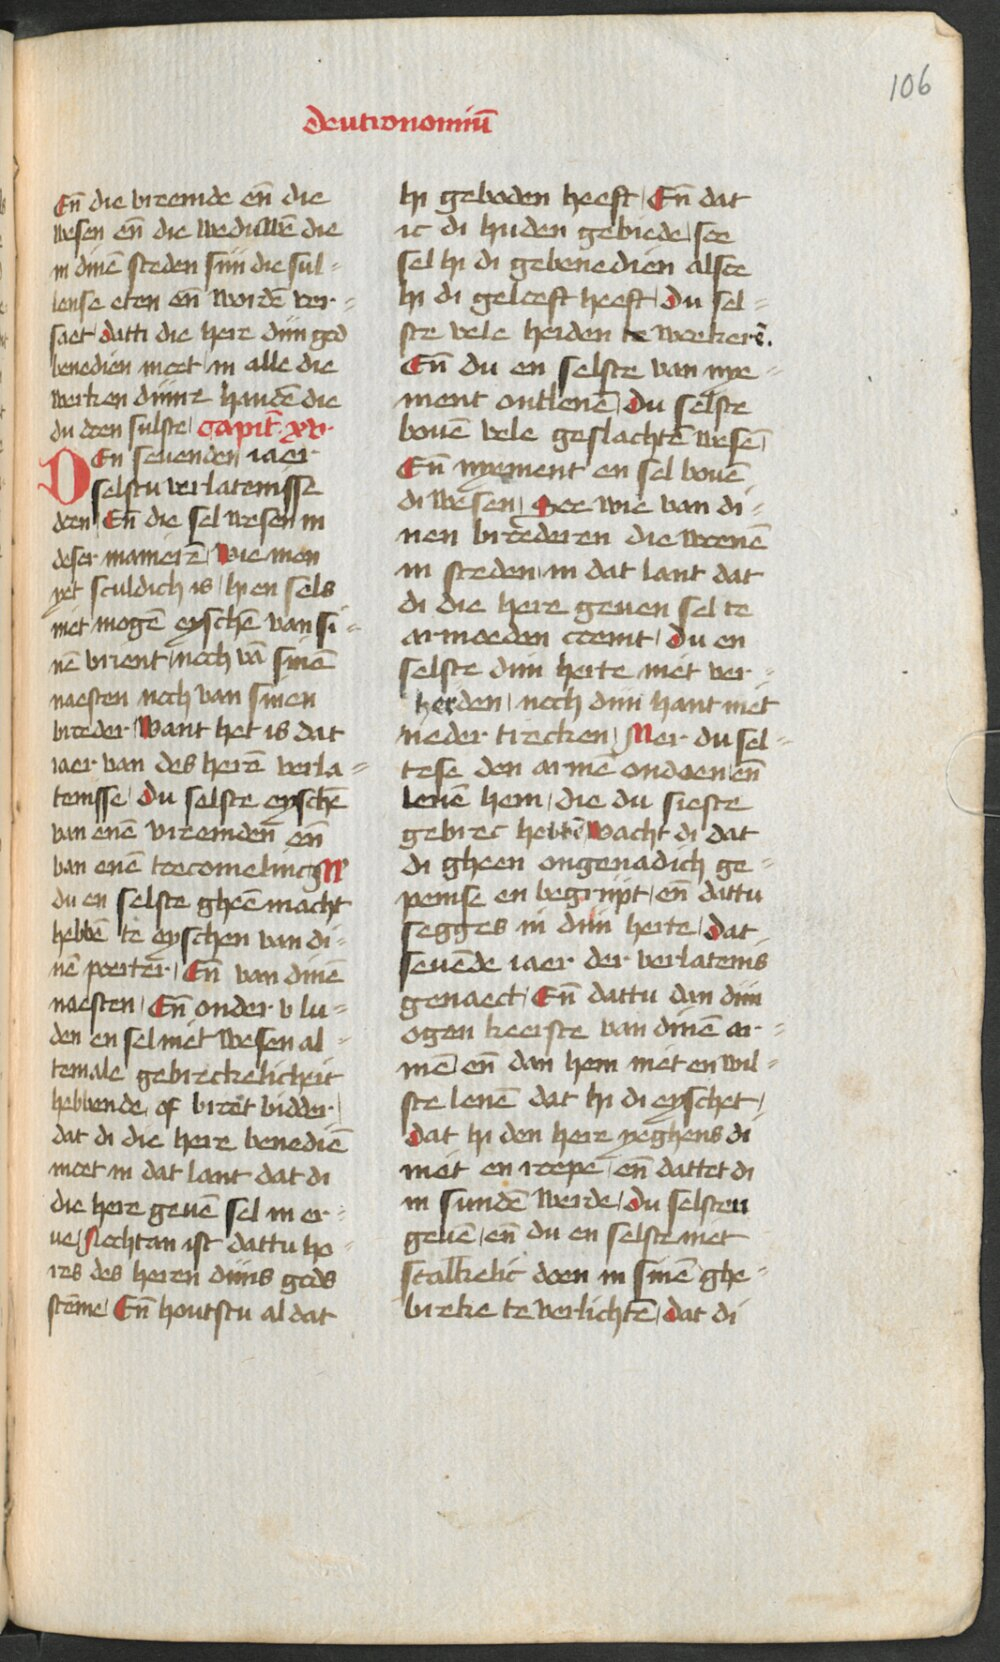 106
deutronomiū
En̄ die vreemde en̄ die
wesen en̄ die weduwē die
in dinē steden siin die sul-
lense eten en̄ wordē ver-
saet datti die here diin god
benedien moet in alle die
werken diinre handē die
du doen sulste Capit̄. xv.
DEn seuenden iaer
selstu verlatenisse
doen En̄ die sel wesen in
deser manierē Wie men
yet sculdich is hi en sels
niet mogē eyschē van si-
nē vrient noch vā sinē
naesten noch van sinen
broeder Want het is dat
iaer van des herē verla-
tenisse Du selste eyschē
van enē vreemden en̄
van enē toecomelinc M'
du en selste gheē macht
hebbē te eyschen van di-
nē poerter En̄ van dinē
naesten En̄ onder v lu-
den en sel niet wesen al-
temale gebreckelicheit
hebbende of broet bidder
dat di die here benediē
moet in dat lant dat di
die here geuē sel in er-
ue Nochtan ist dattu ho-
res des heren diins gods
stēme En̄ houtstu al dat
hi geboden heeft En̄ dat
ic di huden gebiede soe
sel hi di gebenedien alsoe
hi di geloeft heeft Du sel-
ste vele heiden te woekerē.
En̄ du en selste van nye-
ment ontlenē Du selste
bouē vele geslachtē wesē
En̄ nyement en sel bouē
di wesen Soe wie van di-
nen broederen die woenē
in steden in dat lant dat
di die here geuen sel te
armoeden coemt Du en
selste diin herte niet ver-
herden noch diin hant niet
neder trecken Mer du sel-
tese den armē ondoen en̄
lenē hem die du sieste
gebrec hebbē Wacht di dat
di gheen ongenadich ge-
peinse en begriipt en̄ dattu
segges in diin herte Dat
seuēde iaer der verlatenis
genaect En̄ dattu dan diin
ogen keerste van dinē ar-
mē en̄ dan hem niet en wil-
ste lenē dat hi di eyschet
Dat hi den here yeghens di
niet en roepe en̄ dattet di
in sundē werde Du selsten
geuē en̄ du en selste niet
scalkelic doen in sinē ghe-
breke te verlichtē Dat di